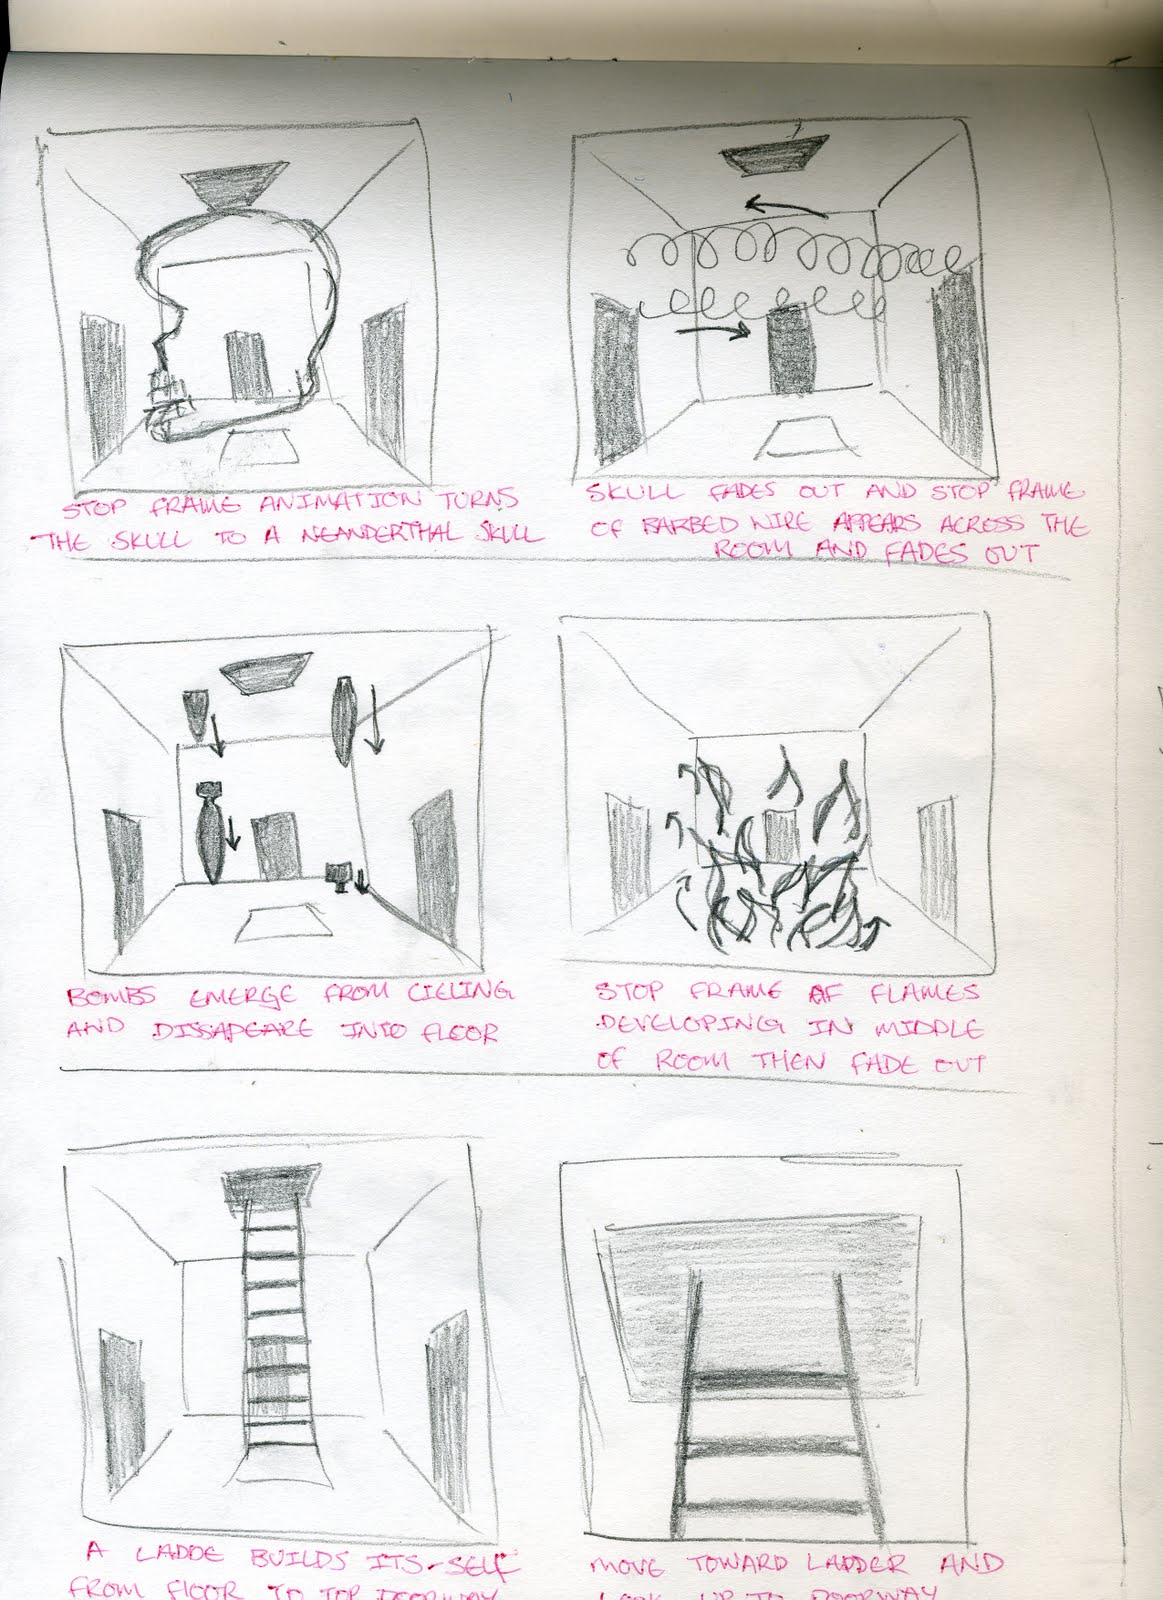 STOP FRAME ANIMATION TURNS
THE SKULL TO A NEANDERTHAL SKULL
SKULL FADES OUT AND STOP FRAME
OF BARBED WIRE APPEARS ACROSS THE
ROOM AND FADES OUT
BOMBS EMERGE FROM CIELING
AND DISSAPEARE INTO FLOOR
STOP FRAME OF FLAMES
DEVELOPING IN MIDDLE
OF ROOM THEN FADE OUT
A LADDE BUILDS ITS-SELF
FROM FLOOR TO TOP DOORWAY
MOVE TOWARD LADDER AND
LOOK UP TO DOORWAY